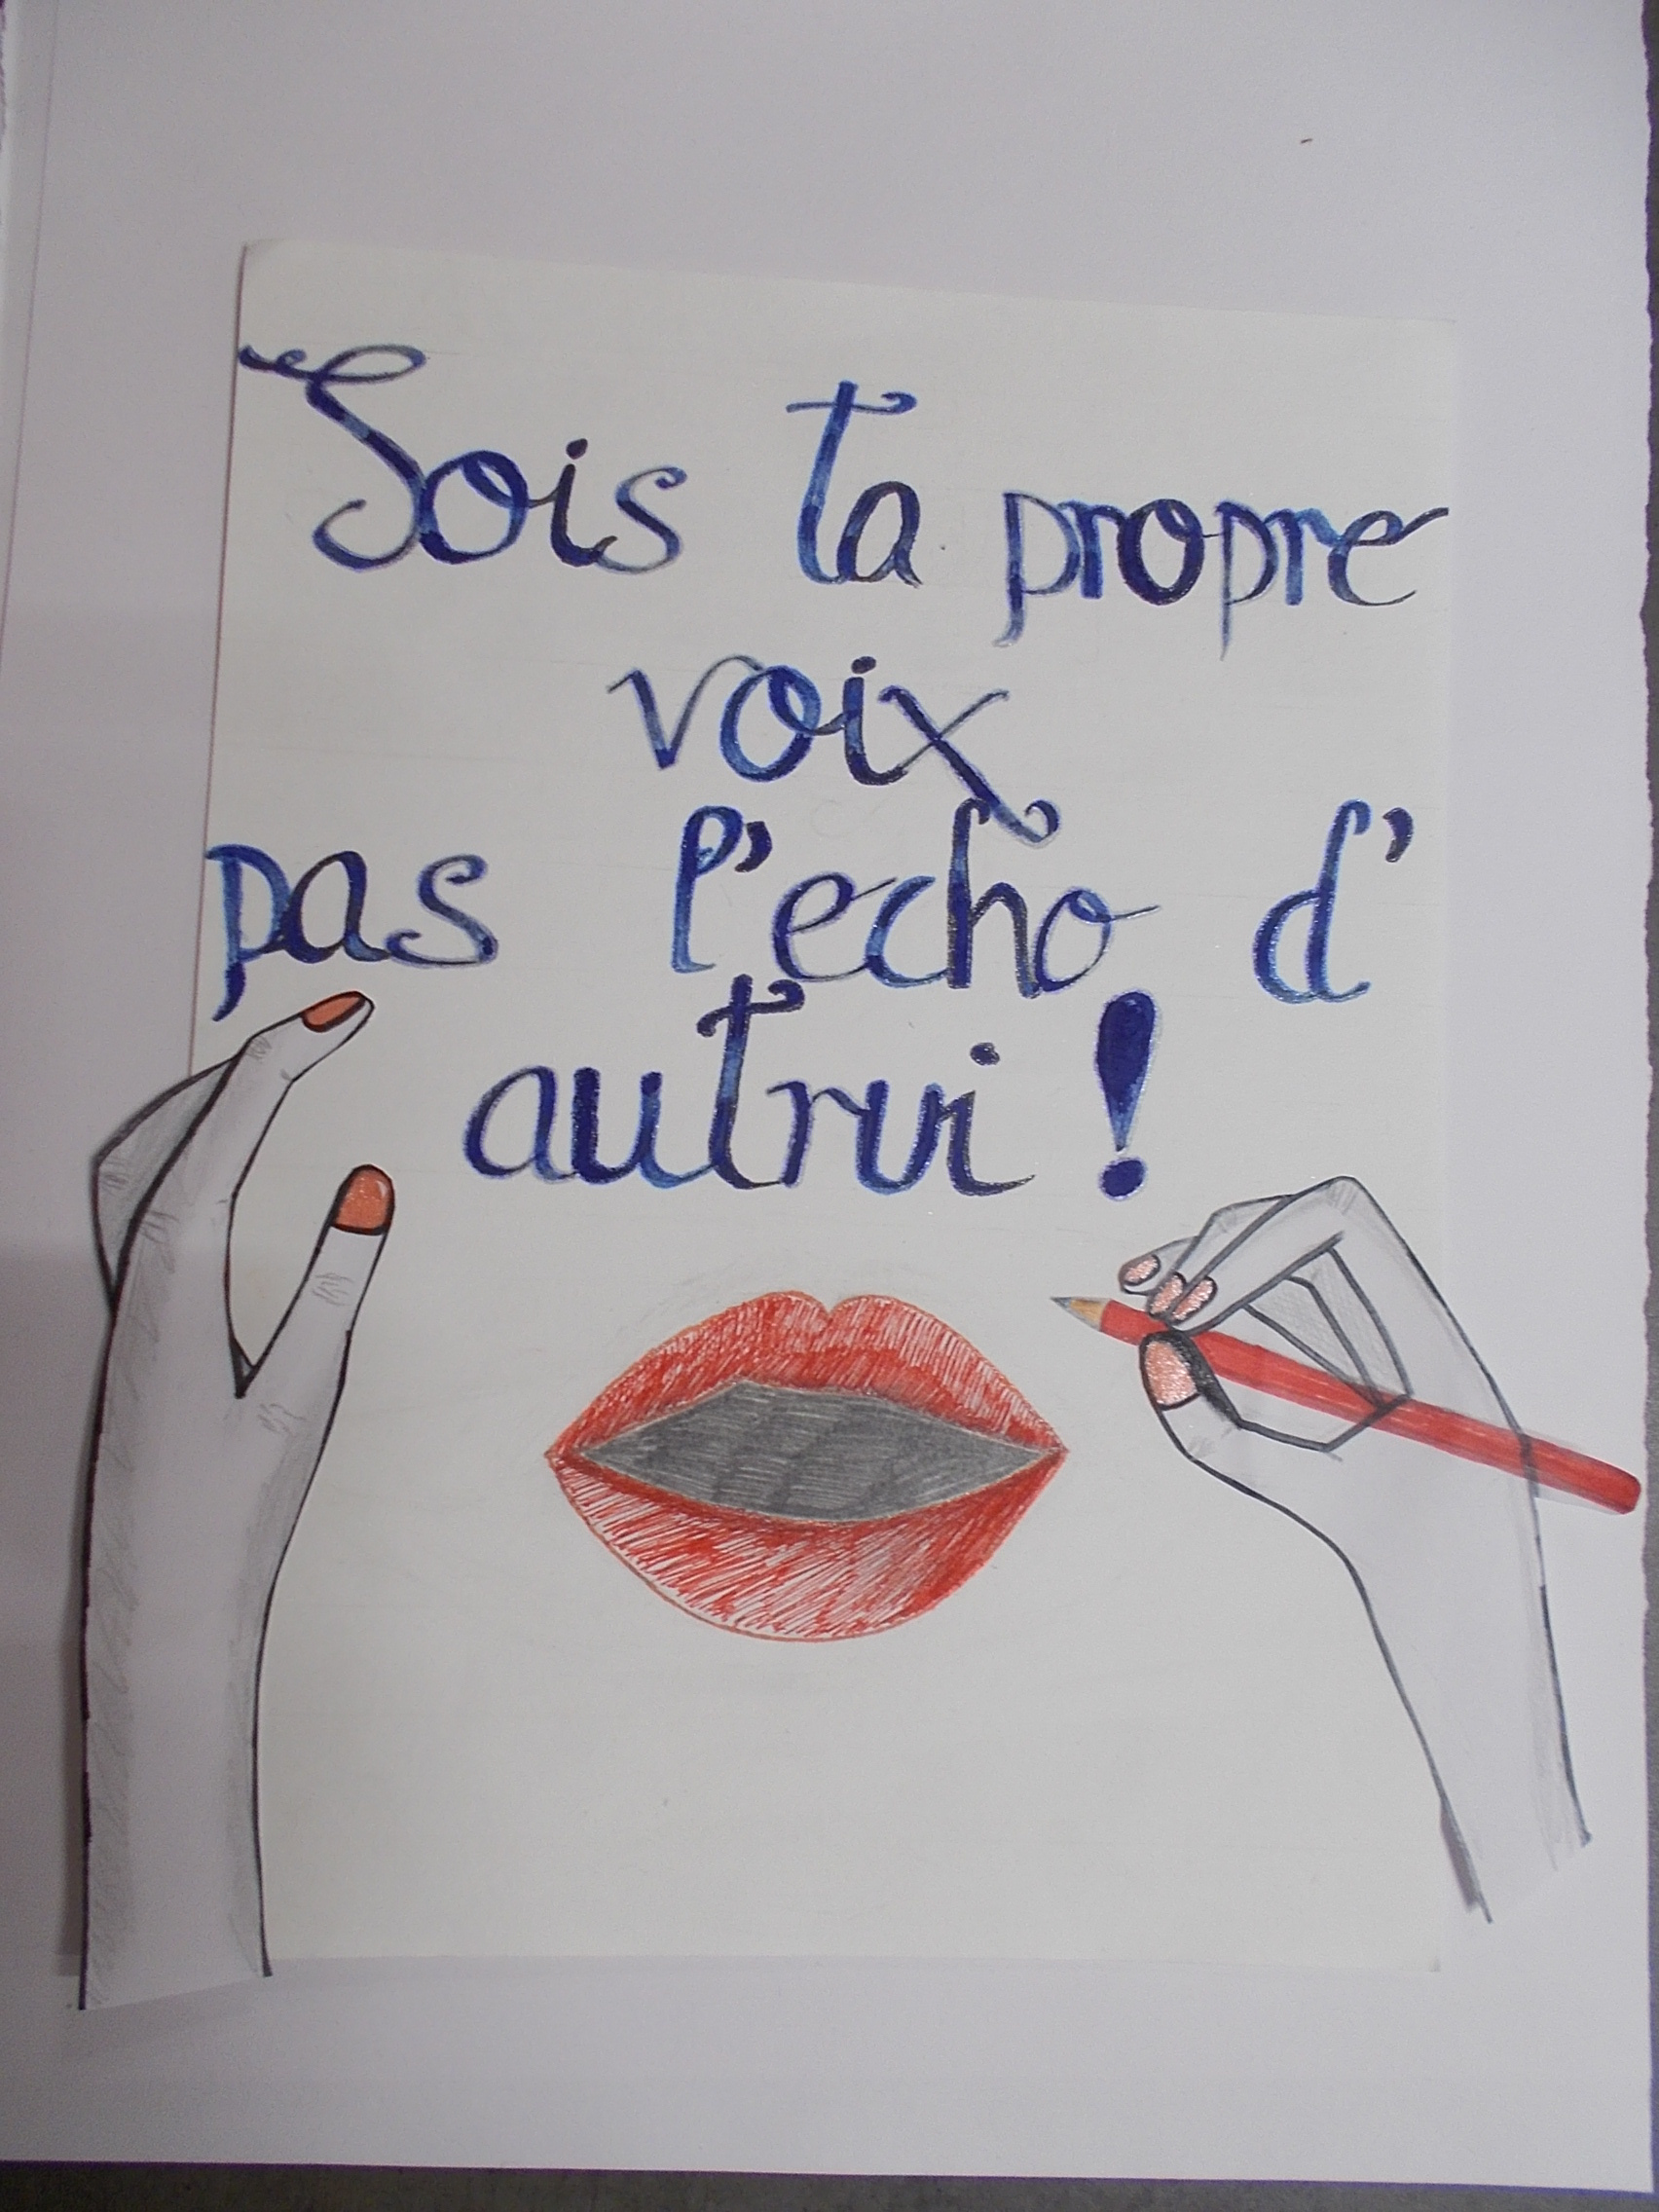 Sois ta propre
voix
pas l'echo d'
autrui !